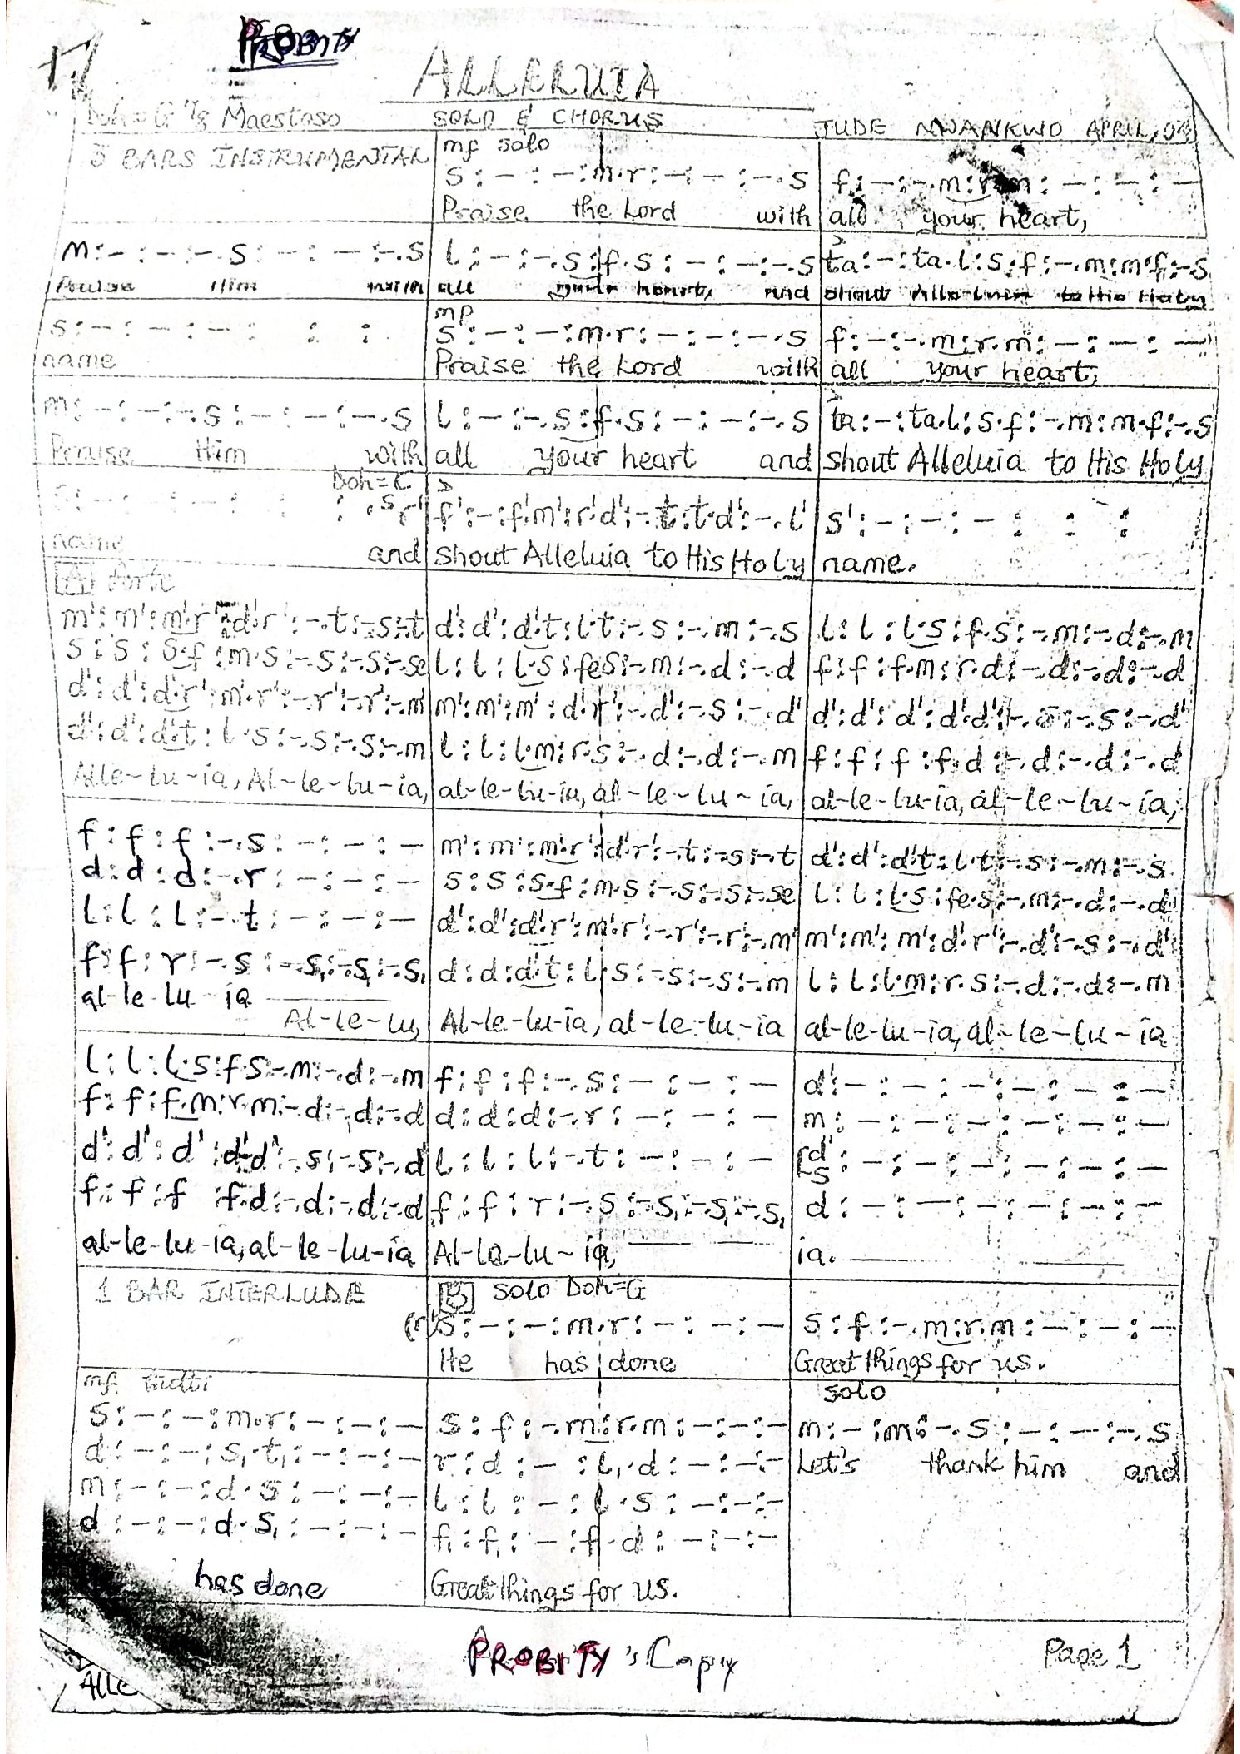 17
PROBITY
ALLELUIA
Doh = G 7/8 Maestoso SOLO & CHORUS JUDE NWANKWO APRIL, 04
5 BARS INSTRUMENTAL mf solo
s : – : – : m.r : – : – : –. s f : – : –. m : r.m : – : – : –
Praise the Lord with all your heart,
m : – : – : –. s : – : – : –. s l : – : –. s : f. s : – : – : –. s ta : – : ta. l : s. f : –. m : m. f : –. s
Praise Him with all your heart, and shout Alleluia to His Holy
mp
s : – : – : – : : : s : – : – : m.r : – : – : –. s f : – : –. m : r. m : – : – : –
name Praise the Lord with all your heart,
m : – : – : –. s : – : – : –. s l : – : –. s : f. s : – : – : –. s ta : – : ta. l : s. f : –. m : m. f : –. s
Praise Him with all your heart and shout Alleluia to His Holy
Doh = C
s : – : – : – : : : . s r' f' : – : f'. m' : r'. d' : –. t : t. d' : –. l' s' : – : – : – : : :
name and shout Alleluia to His Holy name.
A forte
m' : m' : m'. r' : d'. r' : –. t : –. s : –. t d' : d' : d'. t : l. t : –. s : –. m : –. s l : l : l. s : f. s : –. m : –. d : –. m
s : s : s. f : m. s : –. s : –. s : –. se l : l : l. s : fe. s : –. m : –. d : –. d f : f : f. m : r. d : –. d : –. d : –. d
d' : d' : d'. r' : m'. r' : –. r' : –. r' : –. m' m' : m' : m' : d'. r' : –. d' : –. s : –. d' d' : d' : d' : d'. d' : –. s : –. s : –. d'
d' : d' : d'. t : l. s : –. s : –. s : –. m l : l : l. m : r. s : –. d : –. d : –. m f : f : f : f. d : –. d : –. d : –. d
Alle-lu-ia, Al-le-lu-ia, al-le-lu-ia, al-le-lu-ia, al-le-lu-ia, al-le-lu-ia,
f : f : f : –. s : – : – : – m' : m' : m'. r' : d'. r' : –. t : –. s : –. t d' : d' : d'. t : l. t : –. s : –. m : –. s
d : d : d : –. r : – : – : – s : s : s. f : m. s : –. s : –. s : –. se l : l : l. s : fe. s : –. m : –. d : –. d
l : l : l : –. t : – : – : – d' : d' : d'. r' : m'. r' : –. r' : –. r' : –. m' m' : m' : m' : d'. r' : –. d' : –. s : –. d'
f : f : r : –. s : –. s, : –. s, : –. s, d : d : d'. t : l. s : –. s : –. s : –. m l : l : l. m : r. s : –. d : –. d : –. m
al-le-lu-ia Al-le-lu, Al-le-lu-ia, al-le-lu-ia al-le-lu-ia, al-le-lu-ia
l : l : l. s : f. s : –. m : –. d : –. m f : f : f : –. s : – : – : – d' : – : – : – : – : – : –
f : f : f. m : r. m : –. d : –. d : –. d d : d : d : –. r : – : – : – m : – : – : – : – : – : –
d' : d' : d' : d'. d' : –. s : –. s : –. d' l : l : l : –. t : – : – : – [d' s : – : – : – : – : – : –
f : f : f : f. d : –. d : –. d : –. d f : f : r : –. s : –. s, : –. s, : –. s, d : – : – : – : – : – : –
al-le-lu-ia, al-le-lu-ia Al-le-lu-ia, ia.
1 BAR INTERLUDE B SOLO Doh = G
(r')s : – : – : m.r : – : – : – s : f : –. m : r. m : – : – : –
He has done Great things for us.
mf tutti solo
s : – : – : m.r : – : – : – s : f : –. m : r. m : – : – : – m : – : m : –. s : – : – : –. s
d : – : – : s,. t, : – : – : – r : d : – : l,. d : – : – : – Let's thank him and
m : – : – : d. s : – : – : – l : l : – : l. s : – : – : –
d : – : – : d. s, : – : – : – f, : f, : – : f. d : – : – : –
has done Great things for us.
PROBITY's Copy Page 1
Alle